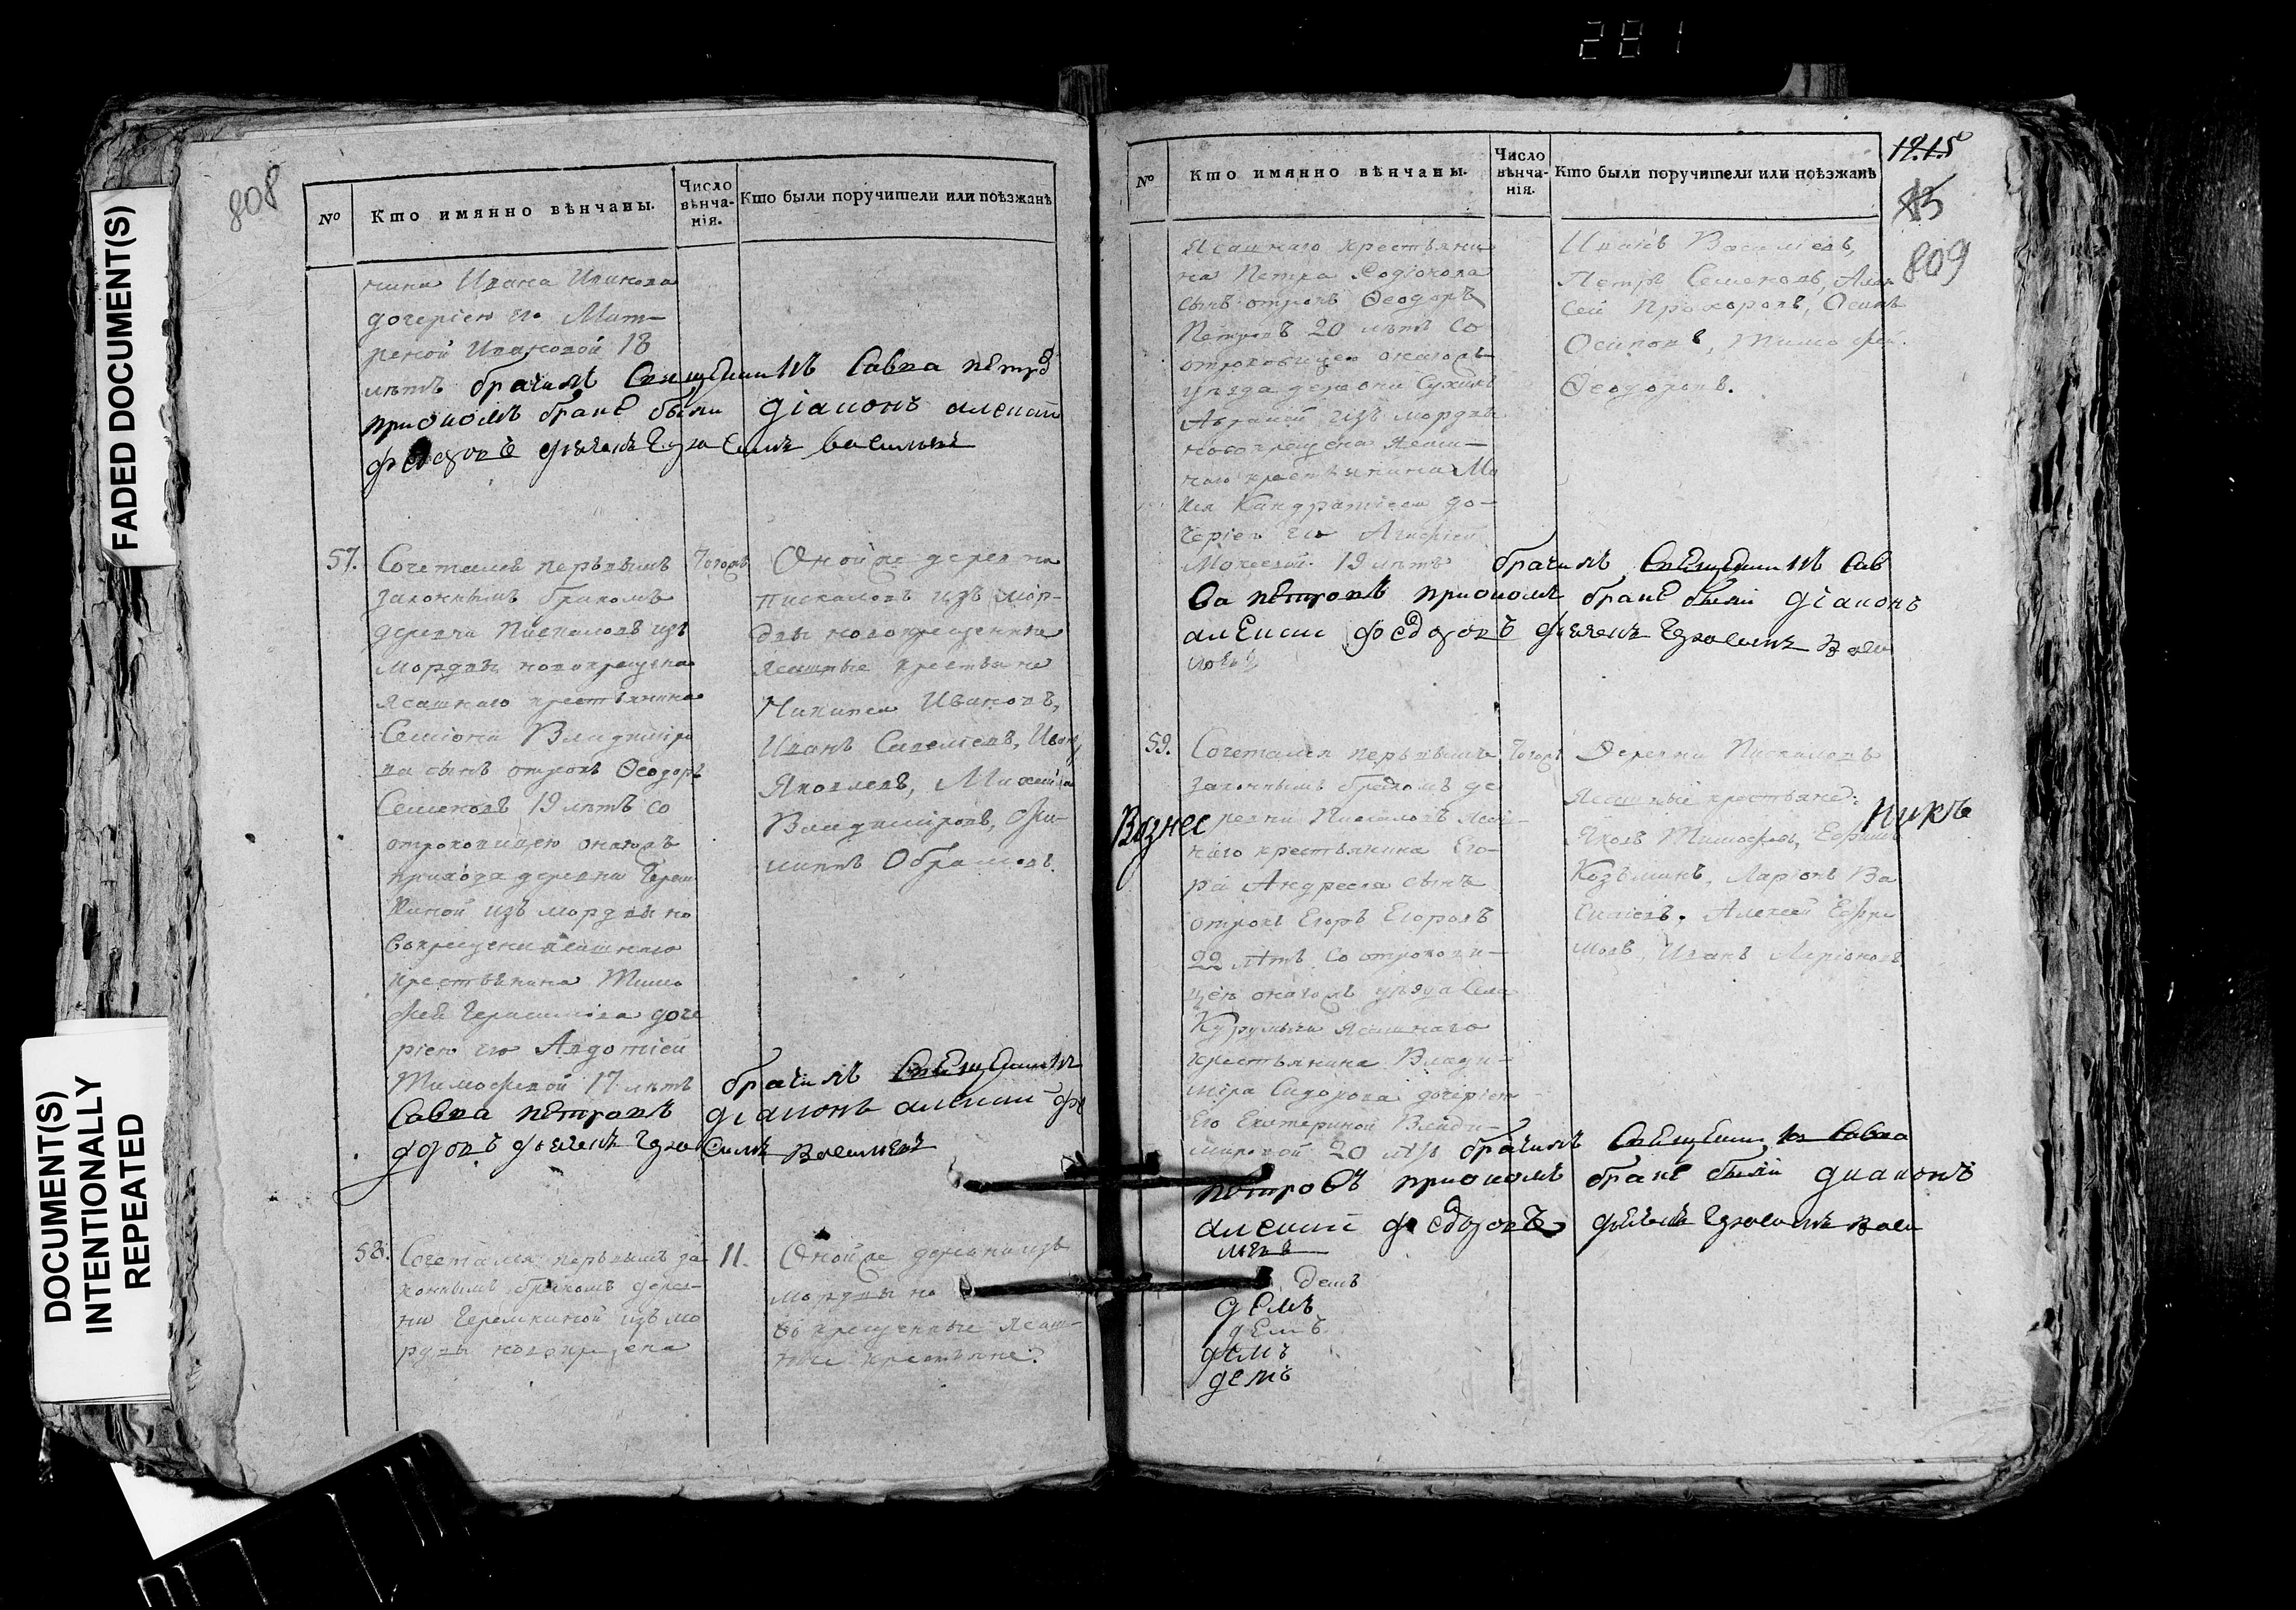 281
FADED DOCUMENT(S)
DOCUMENT(S)
INTENTIONALLY
REPEATED
808
№
Кто имянно вѣнчаны.
Число вѣнча-нія.
Кто были поручители или поѣзжанѣ
нина Ивана Иванова
дочерїею ево Мат-
реной Ивановой 18
лѣтъ брачилъ Священникъ Савва петров
приономъ браке были дїаконъ алексии
федоровъ дьячекъ герасимъ васильевъ
57.
Сочетался первымъ
законнымъ бракомъ
деревни Пискаловъ изъ
мордвы новокрещена
ясашнаго крестьянина
Семїона Владимїро
ва сынъ отрокъ Ѳеодоръ
Семеновъ 19 лѣтъ со
отроковицею онагожъ
прихода деревни Черем
киной изъ мордвы но
вокрещена ясашнаго
крестьянина Тимо
фея Герасимова доче
рїею ево Авдотїей
Тимофеевой 17 лѣтъ брачилъ Священникъ
Савва петровъ дїаконъ алексии фе
доровъ дьячекъ герасимъ Васильевъ
Тогожъ
Оной же деревни
Пискаловъ изъ мор-
двы новокрещенныя
ясашные крестьяне
Никита Ивановъ,
Иванъ Савелїевъ, Иванъ
Яковлевъ, Михаила
Владимїровъ, Фи-
липпъ Обрамовъ.
58.
Сочетался первымъ за
коннымъ бракомъ дерев-
ни Черемкиной изъ мо
рдвы новокрещена
11.
Оной же деревни изъ
мордвы но
вокрещенные ясаш-
ные крестьяне:
1215
809
№
Кто имянно вѣнчаны.
Число вѣнча-нія.
Кто были поручители или поѣзжанѣ
Ясашнаго крестьяни
на Петра Родїонова
сынъ отрокъ Ѳеодоръ
Петровъ 20 лѣтъ со
отроковицею онагожъ
уѣзда деревни Сухихъ
изъ мордвы
новокрещена ясаш-
наго крестьянина Мо
Кандратїева до-
черїею ево
Мокеевой 19 лѣтъ брачилъ Священникъ Сав
ва петровъ приономъ браке были дїаконъ
алексии федоровъ дьячекъ герасимъ васи
льевъ
Иванъ Василїевъ,
Петръ Семеновъ, Алек
сей Прохоровъ, Осипъ
Осиповъ, Тимофей
Ѳеодоровъ.
59.
Сочетался первымъ
законнымъ бракомъ де
ревни Пискаловъ ясаш-
наго крестьянина Его-
ра Андреева сынъ
отрокъ Егоръ Егоровъ
22 лѣтъ со отрокови-
цею онагожъ уѣзда села
Курумычи ясашнаго
крестьянина Влади-
мїра Сидорова дочерїею
Его Екатериной Влади-
мировой 20 лѣтъ брачилъ Священникъ Савва
петровъ приономъ браке были диаконъ
алексии федоровъ дьячекъ герасимъ васи
льевъ
Тогожъ
Деревни Пискаловъ
ясашные крестьяне:
Яковъ Тимофеевъ, Ефимъ
Козьминъ, Ларїонъ Ва
силїевъ, Алексей Ефи
мовъ, Иванъ Ларїоновъ
Вознес
демъ
демъ
демъ
демъ
демъ